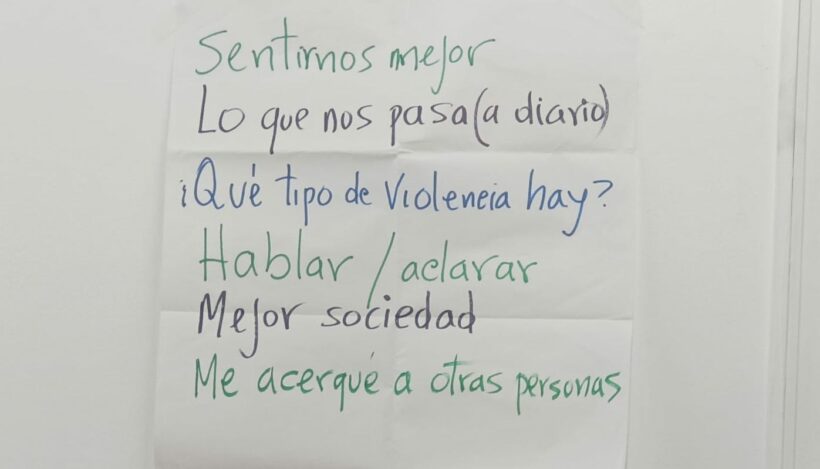 Sentirnos mejor
Lo que nos pasa (a diario)
¡Qué tipo de violencia hay?
Hablar / aclarar
Mejor sociedad
Me acerqué a otras personas